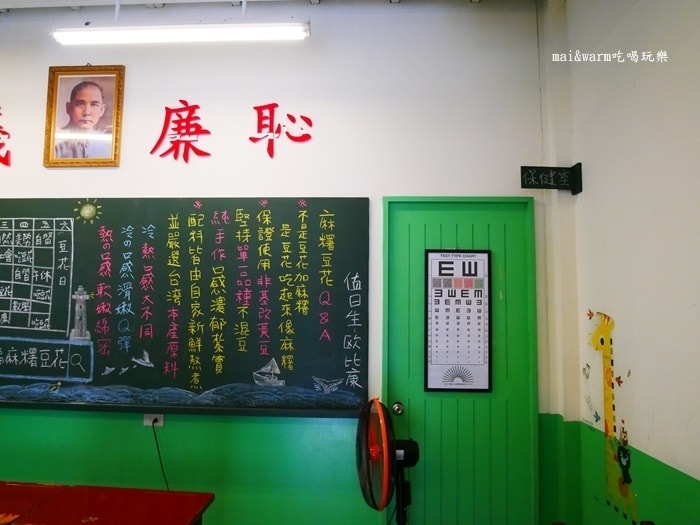 mai&warm吃喝玩樂
廉 恥
保健室
值日生 歐比康
麻糬豆花Q&A
※不是豆花加麻糬
是豆花吃起來像麻糬
※保證使用非基改黃豆
堅持單一品種不混豆
※純手作 口感濃郁紮實
※配料皆由自家新鮮熬煮
並嚴選台灣本產原料
※冷熱口感大不同
冷の口感滑嫩Q彈
熱の口感軟嫩綿密
三 四 五 六
豆花日
麻糬豆花
TEST TYPE CHART
E W